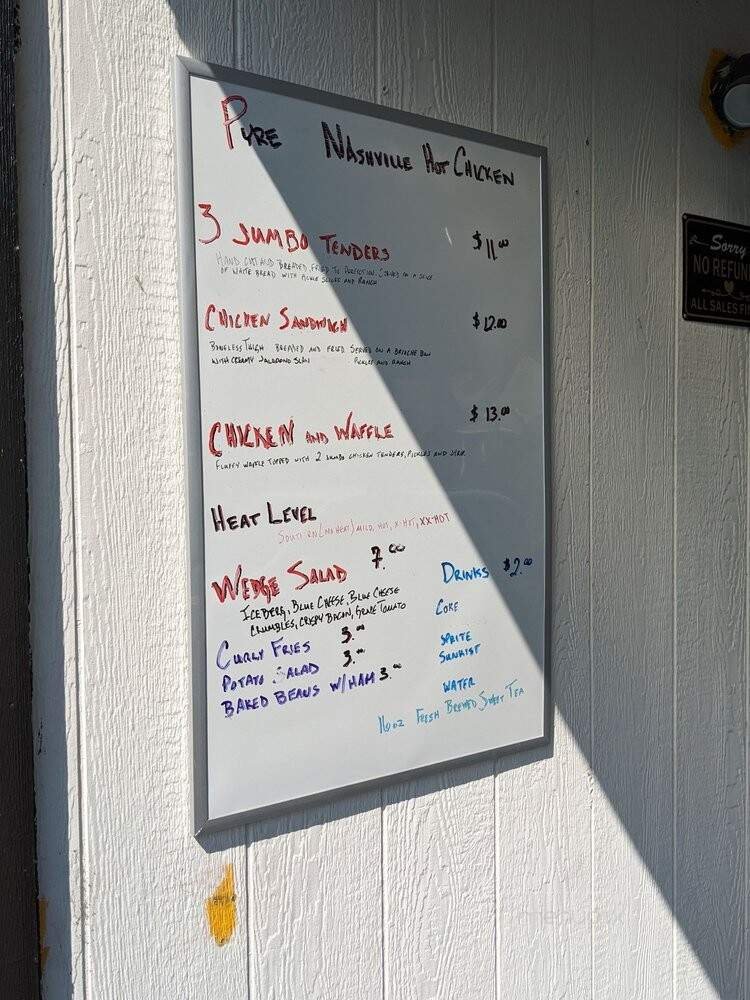 PYRE NASHVILLE HOT CHICKEN
3 JUMBO TENDERS $11.00
HAND CUT AND BREADED, FRIED TO PERFECTION. SERVED ON A SLICE
OF WHITE BREAD WITH PICKLE SLICES AND RANCH
CHICKEN SANDWICH $12.00
BONELESS THIGH BREADED AND FRIED SERVED ON A BRIOCHE BUN
WITH CREAMY JALAPENO SLAW PICKLES AND RANCH
CHICKEN AND WAFFLE $13.00
FLUFFY WAFFLE TOPPED WITH 2 JUMBO CHICKEN TENDERS, PICKLES AND
HEAT LEVEL
SOUTHERN (NO HEAT) MILD, HOT, X-HOT, XX-HOT
WEDGE SALAD 7.00
ICEBERG, BLUE CHEESE, BLUE CHEESE
CRUMBLES, CRISPY BACON, GRAPE TOMATO
CURLY FRIES 3.00
POTATO SALAD 3.00
BAKED BEANS W/HAM 3.00
DRINKS $2.00
COKE
SPRITE
SUNKIST
WATER
16 oz FRESH BREWED SWEET TEA
Sorry
NO REFUN
ALL SALES F